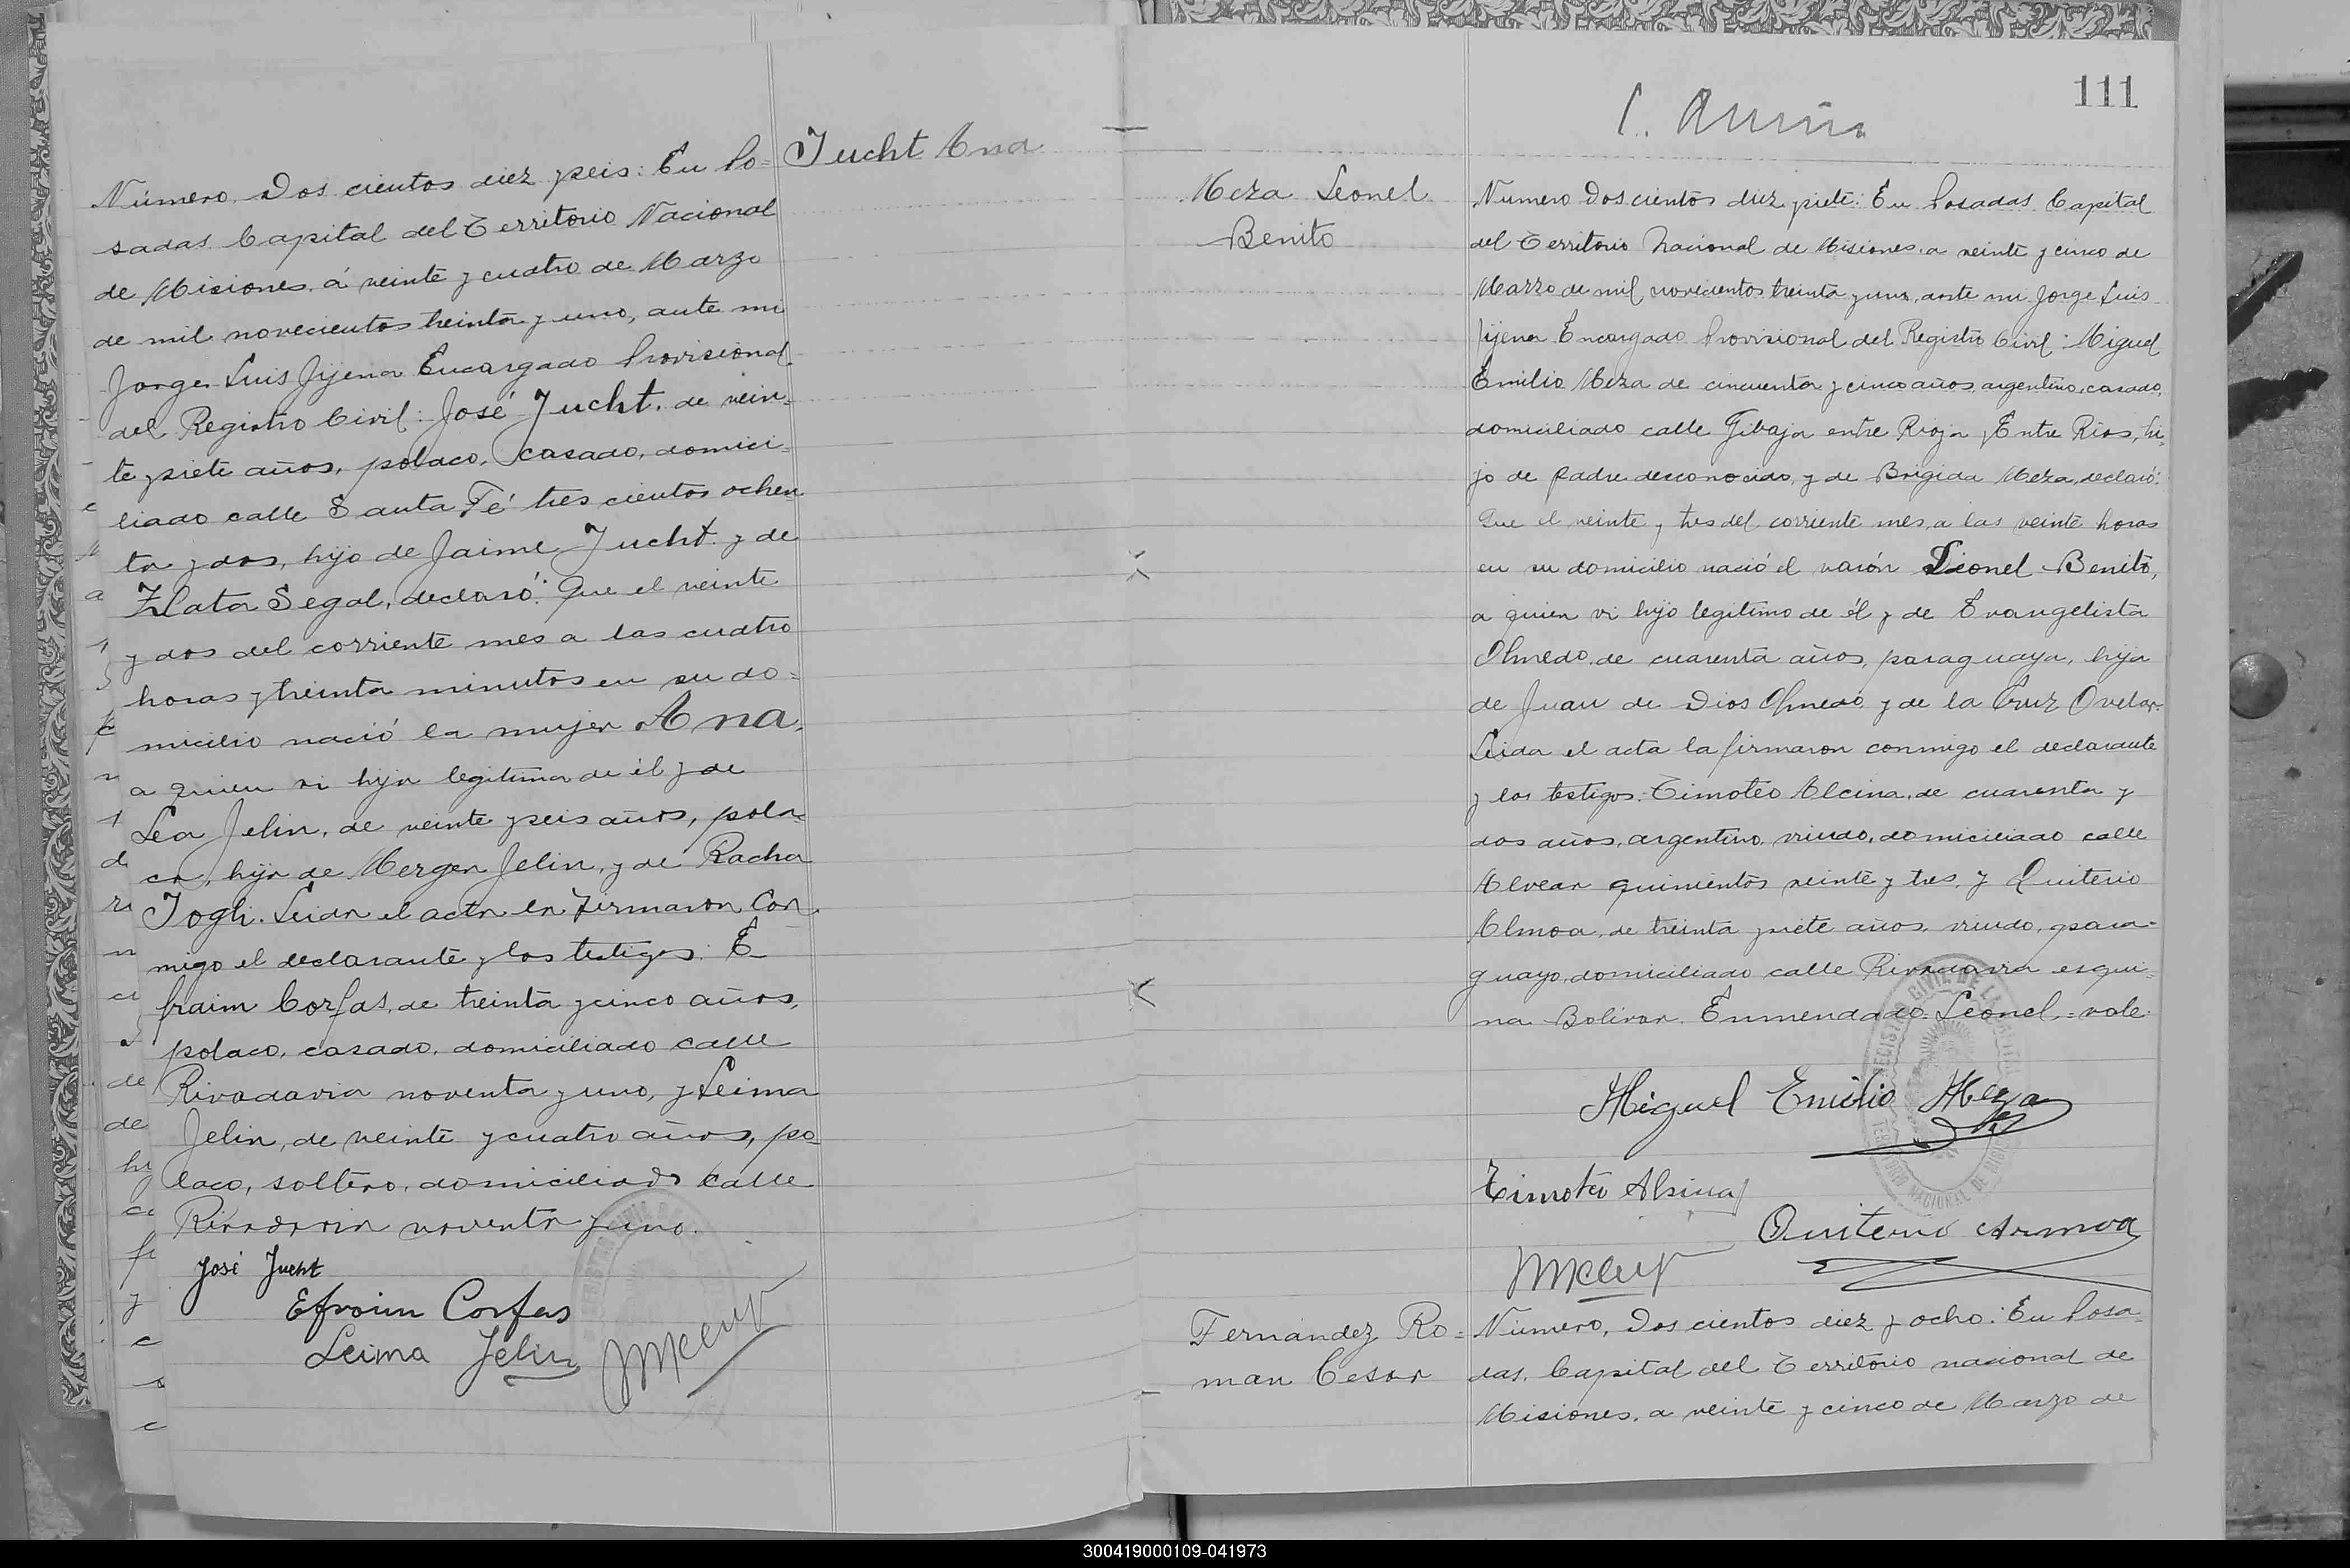 Jucht Ana
Número Dos cientos diez y seis: En Po=
sadas Capital del Territorio Nacional
de Misiones, á veinte y cuatro de Marzo
de mil novecientos treinta y uno, ante mi
Jorge Luis Jijena Encargado Provisional
del Registro Civil: José Jucht, de vein=
te y siete años, polaco, casado, domici=
liado calle Santa Fé tres cientos ochen
ta y dos, hijo de Jaime Jucht y de
Zlata Segal, declaró: Que el veinte
y dos del corriente mes a las cuatro
horas y treinta minutos en su do=
micilio nació la mujer Ana,
a quien vi hija legitima de él y de
Lea Jelin, de veinte y seis años, pola=
ca, hija de Mergen Jelin, y de Racha
Jogli. Leida el acta la firmaron con
migo el declarante y los testigos: E_
fraim Corfas, de treinta y cinco años,
polaco, casado, domiciliado calle
Rivadavia noventa y uno, y Leima
Jelin, de veinte y cuatro años, po=
laco, soltero, domiciliado calle
Rivadavia noventa y uno.
José Jucht
Efraim Corfas
Leima Jelin
111
Meza Leonel
Benito
Número Dos cientos diez y siete: En Posadas Capital
del Territorio Nacional de Misiones, a veinte y cinco de
Marzo de mil novecientos treinta y uno, ante mi Jorge Luis
Jijena Encargado Provisional del Registro Civil: Miguel
Emilio Meza de cincuenta y cinco años, argentino, casado,
domiciliado calle Gibaja entre Rioja y Entre Rios, hi=
jo de padre desconocido, y de Brigida Meza, declaró:
Que el veinte y tres del corriente mes, a las veinte horas
en su domicilio nació el varón Leonel Benito,
a quien vi hijo legitimo de él y de Evangelista
Olmedo, de cuarenta años, paraguaya, hija
de Juan de Dios Olmedo y de la Cruz Ovelar.
Leida el acta la firmaron conmigo el declarante
y los testigos: Timoteo Alcina, de cuarenta y
dos años, argentino, viudo, domiciliado calle
Alvear quinientos veinte y tres, y Quiterio
Almoa, de treinta y siete años, viudo, para=
guayo, domiciliado calle Rivadavia esqui=
na Bolivar. Enmendado: Leonel, = vale.
Miguel Emilio Meza
Timoteo Alsina
Quiterio Armoa
Fernández Ro=
man Cesar
Número, Dos cientos diez y ocho: En Posa=
das, Capital del Territorio nacional de
Misiones, a veinte y cinco de Marzo de
300419000109-041973